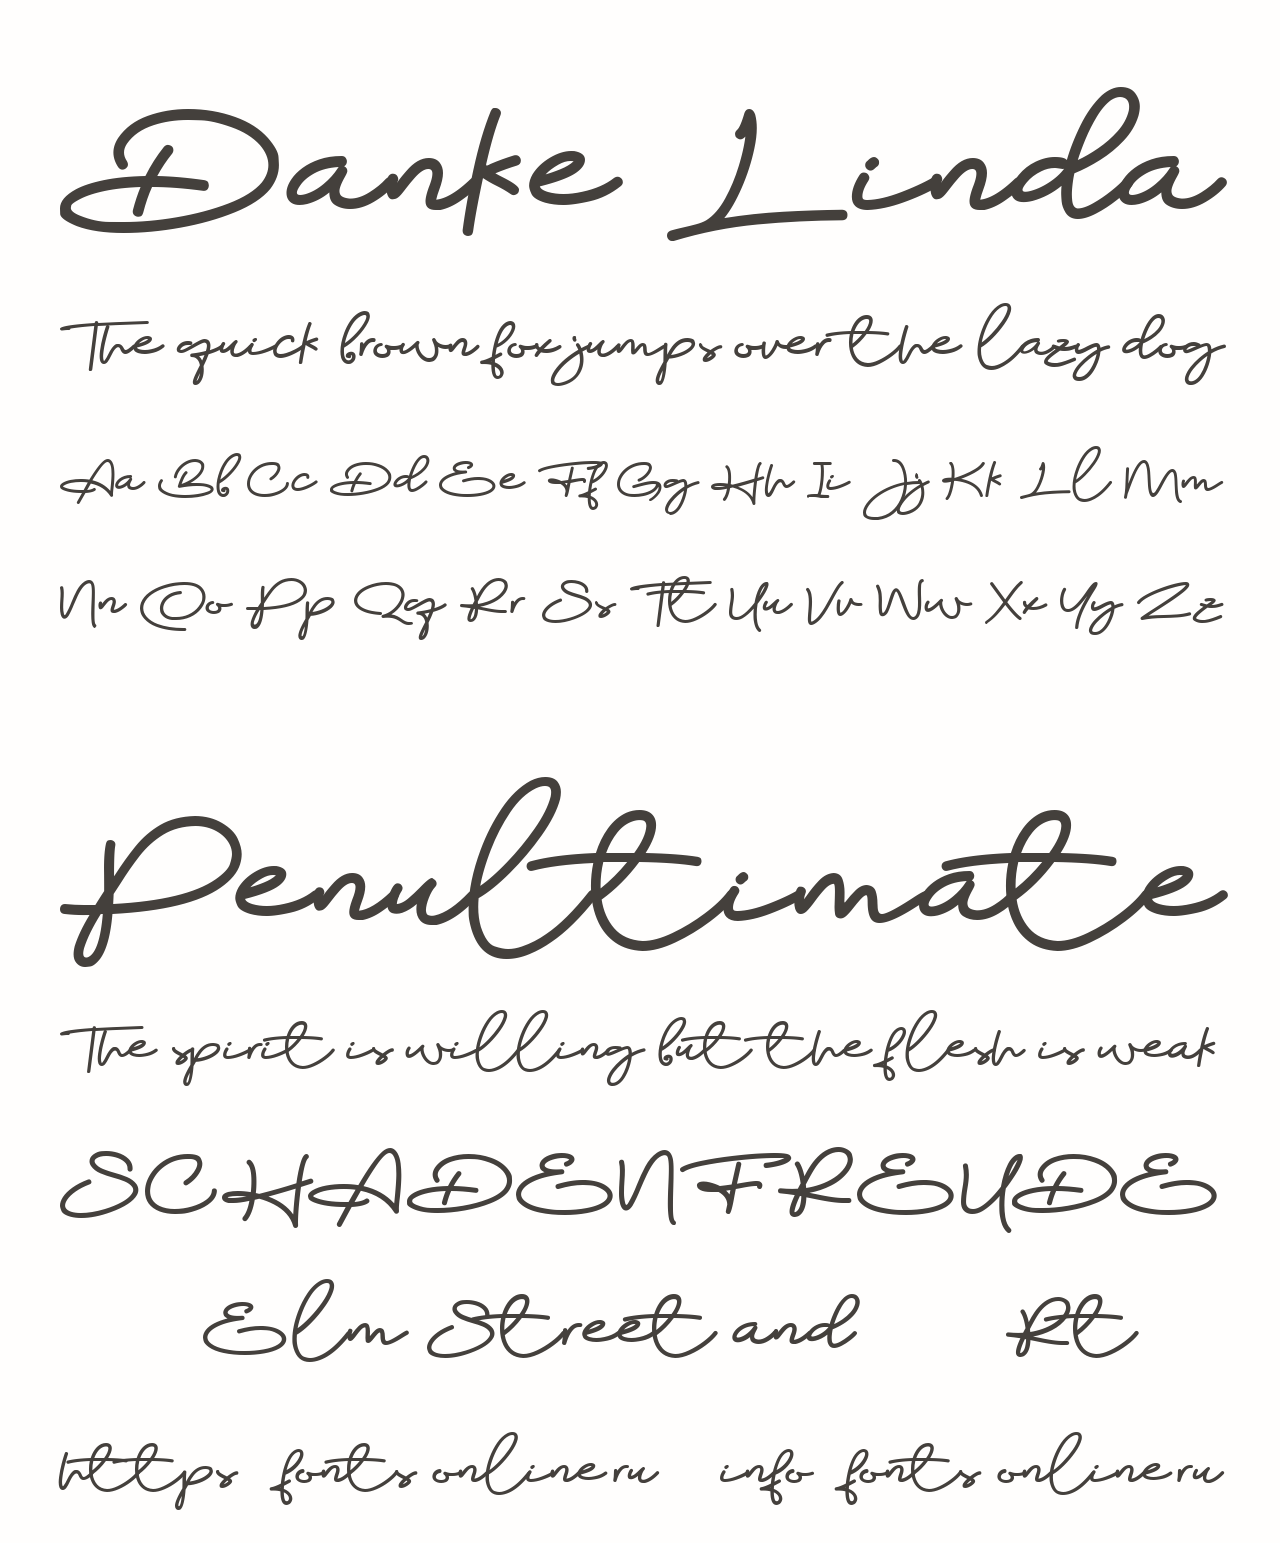 Danke Linda
The quick brown fox jumps over the lazy dog
Aa Bb Cc Dd Ee Ff Gg Hh Ii Jj Kk Ll Mm
Nn Oo Pp Qq Rr Ss Tt Uu Vv Ww Xx Yy Zz
Penultimate
The spirit is willing but the flesh is weak
SCHADENFREUDE
Elm Street and Rt
https fonts online ru info fonts online ru